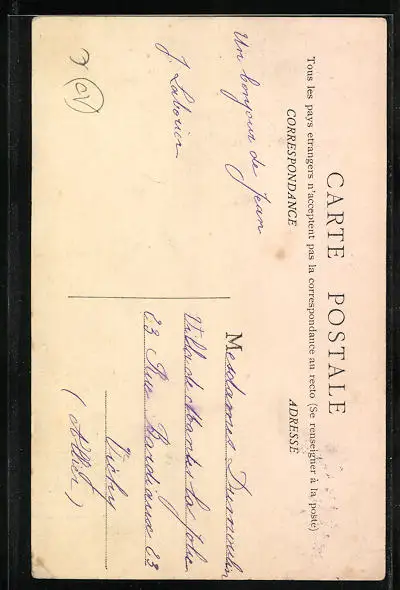 CARTE POSTALE
Tous les pays etrangers n'acceptent pas la correspondance au recto (Se renseigner à la poste)
CORRESPONDANCE
ADRESSE
Un bonjour de Jean
J. Laborier
Mesdames Dumoulin
Villa de Mantes la Jolie
23 Rue 23
Vichy
(Allier)